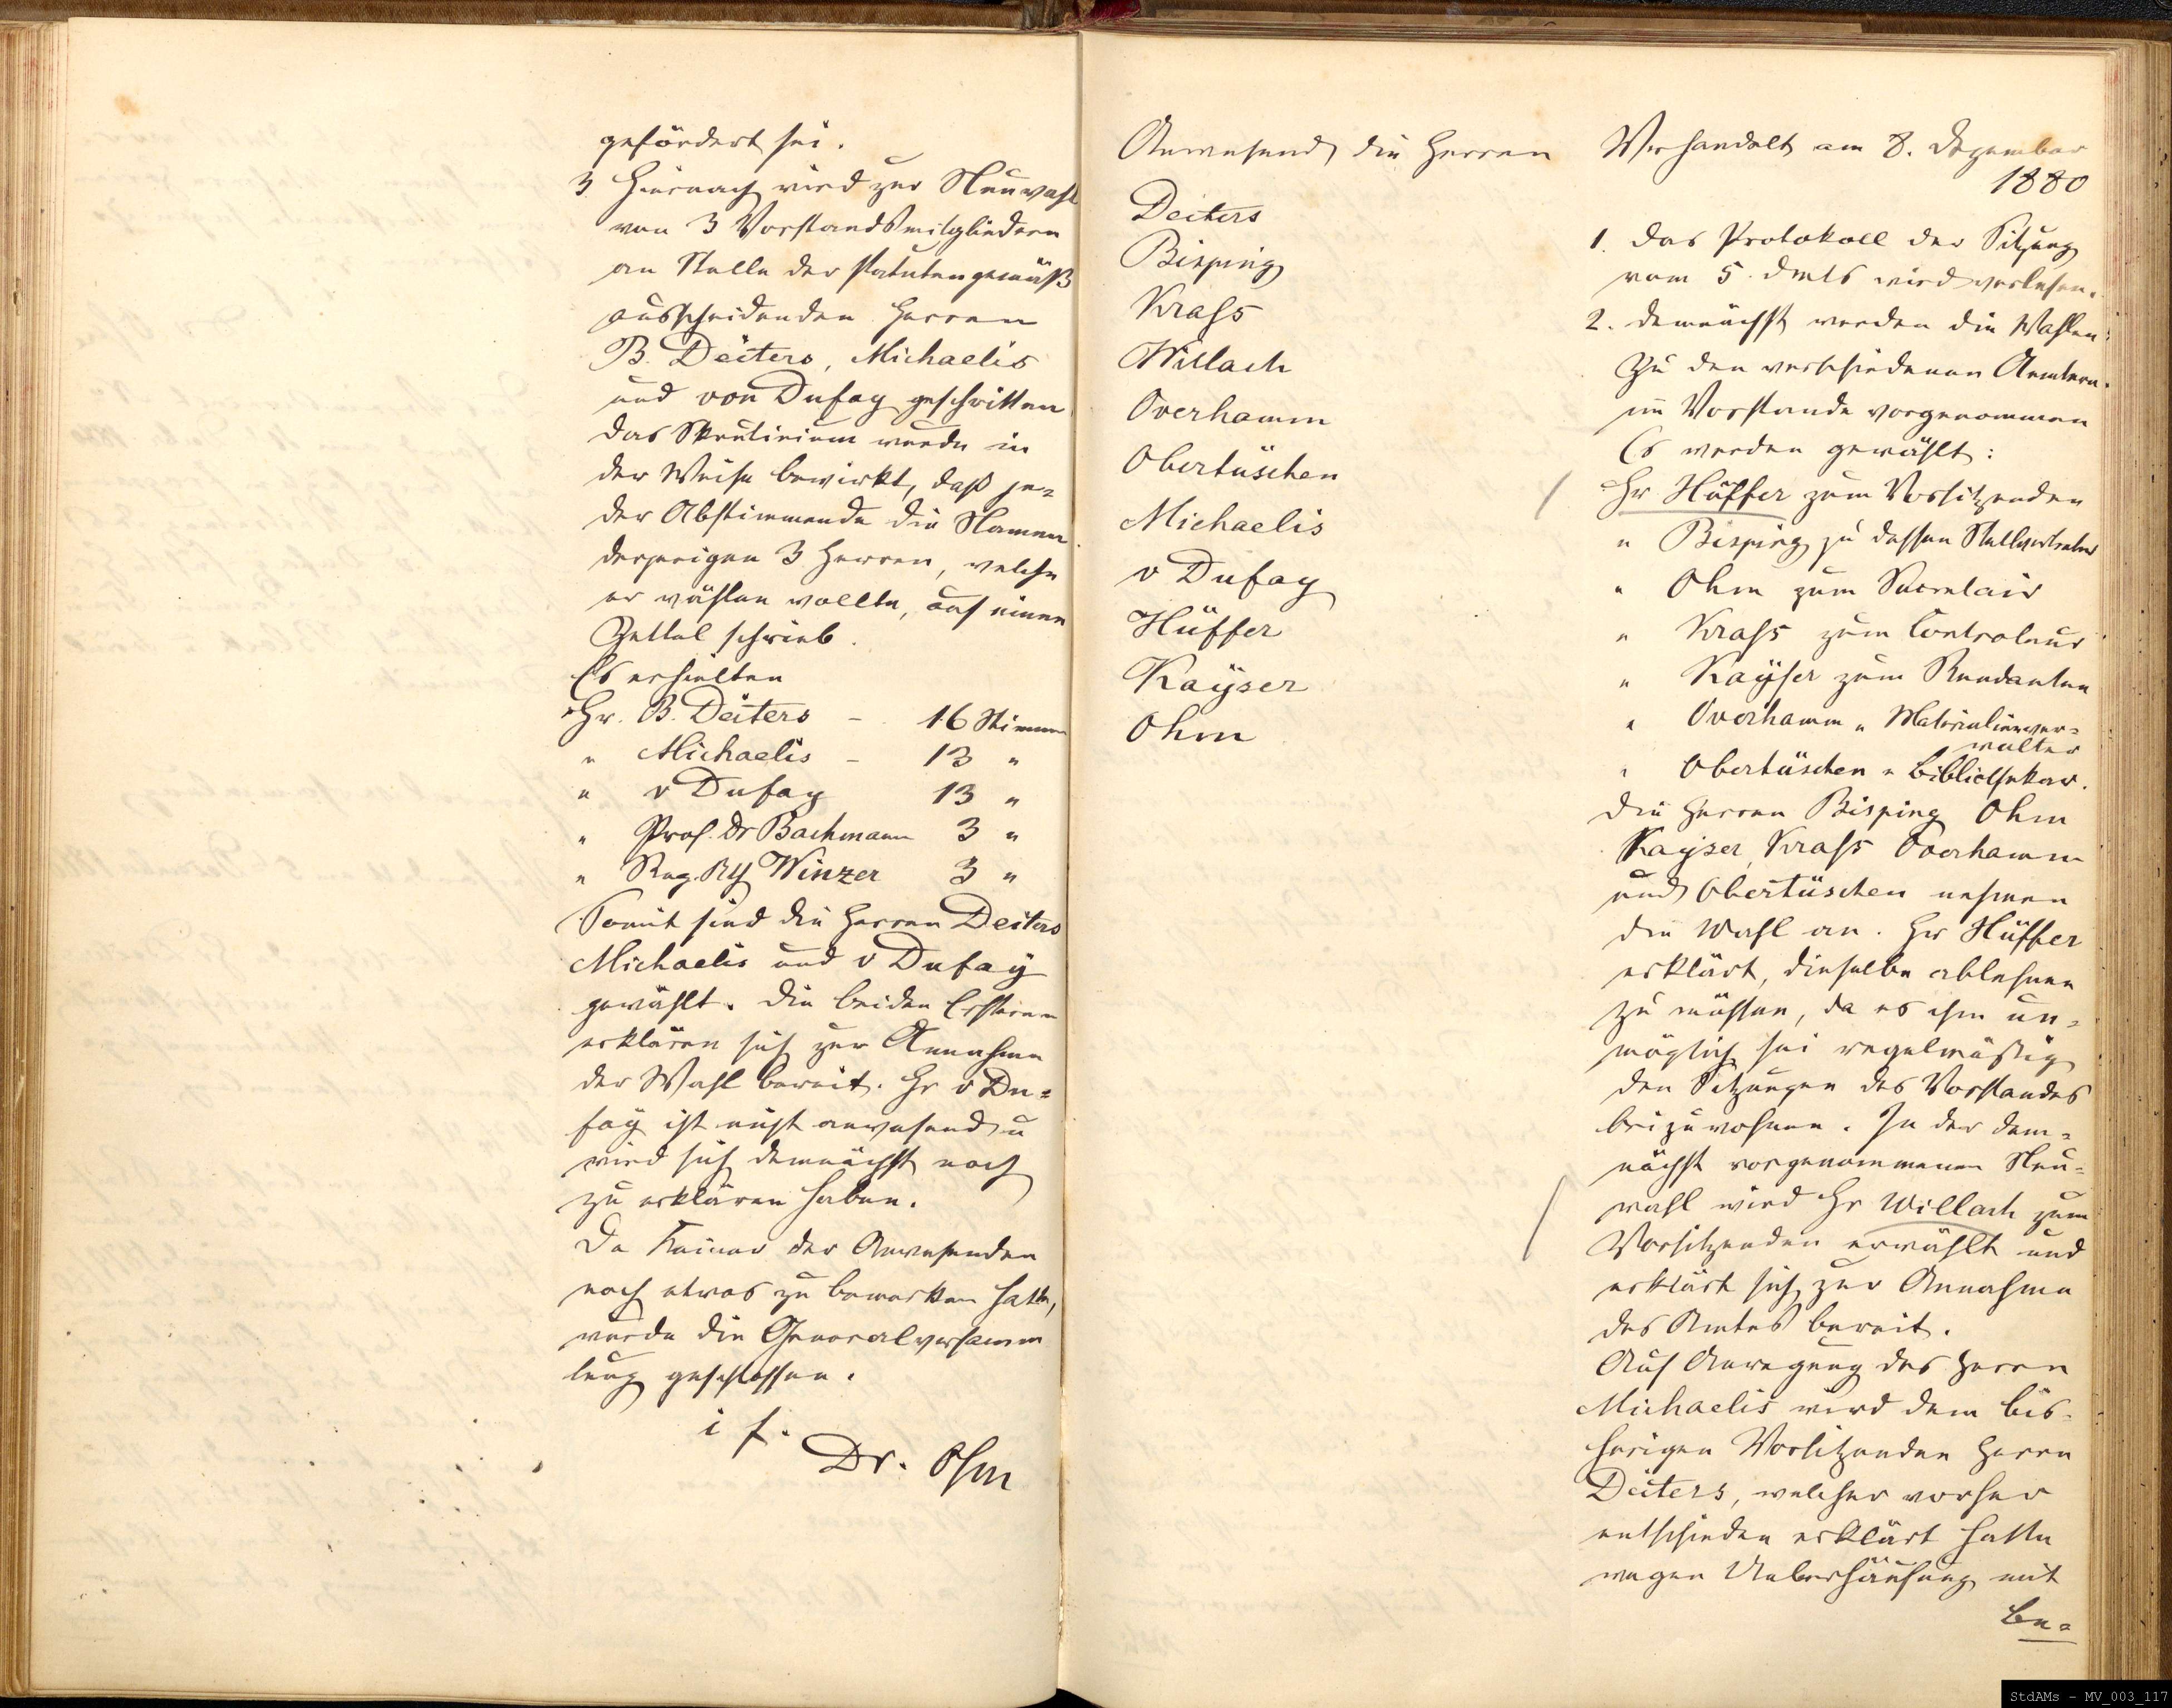 gefördert sei.
3 Hiernach wird zur Neuwahl
von 3 Vorstandsmitgliedern
an Stelle der statutengemäß
ausscheidenden Herren
B. Deiters, Michaelis
und von Dufay geschritten
das Skrutinium wurde in
der Weise bewirkt, daß je=
der Abstimmende die Namen
derjenigen 3 Herren, welche
er wählen wollte, auf einen
Zettel schrieb.
Es erhielten
Hr. B. Deiters – 16 Stimmen
" Michaelis – 13 "
" v Dufay 13 "
" Prof. Dr Bachmann 3 "
" Reg. Rth Winzer 3 "
Somit sind die Herren Deiters
Michaelis und v Dufay
gewählt. Die beiden Ersteren
erklären sich zur Annahme
der Wahl bereit. Hr v Du=
fay ist nicht anwesend u
wird sich demnächst noch
zu erklären haben.
Da Keiner der Anwesenden
noch etwas zu bemerken hatte,
wurde die Generalversamm
lung geschlossen.
i f.
Dr. Ohm
Anwesend die Herren
Deiters
Bisping
Krass
Willach
Overhamm
Obertüschen
Michaelis
v Dufay
Hüffer
Kayser
Ohm
Verhandelt am 8. Dezember
1880
1. Das Protokoll der Sitzung
vom 5. dMts wird verlesen.
2. Demnächst werden die Wahlen
zu den verschiedenen Aemtern
im Vorstande vorgenommen
Es werden gewählt:
Hr Hüffer zum Vorsitzenden
" Bisping zu dessen Stellvertreter
" Ohm zum Secretair
" Krass zum Controleur
" Kayser zum Rendanten
" Overhamm " Materialienver=
walter
" Obertüschen " Bibliothekar.
Die Herren Bisping Ohm
Kayser, Krass Overhamm
und Obertüschen nehmen
die Wahl an. Hr Hüffer
erklärt, dieselbe ablehnen
zu müssen, da es ihm un=
möglich sei regelmäßig
den Sitzungen des Vorstandes
beizuwohnen. In der dem=
nächst vorgenommenen Neu=
wahl wird Hr Willach zum
Vorsitzenden erwählt und
erklärt sich zur Annahme
des Amtes bereit.
Auf Anregung des Herrn
Michaelis wird dem bis=
herigen Vorsitzenden Herrn
Deiters, welcher vorher
entschieden erklärt hatte
wegen Ueberhäufung mit
Be=
StdAMs – MV_003_117